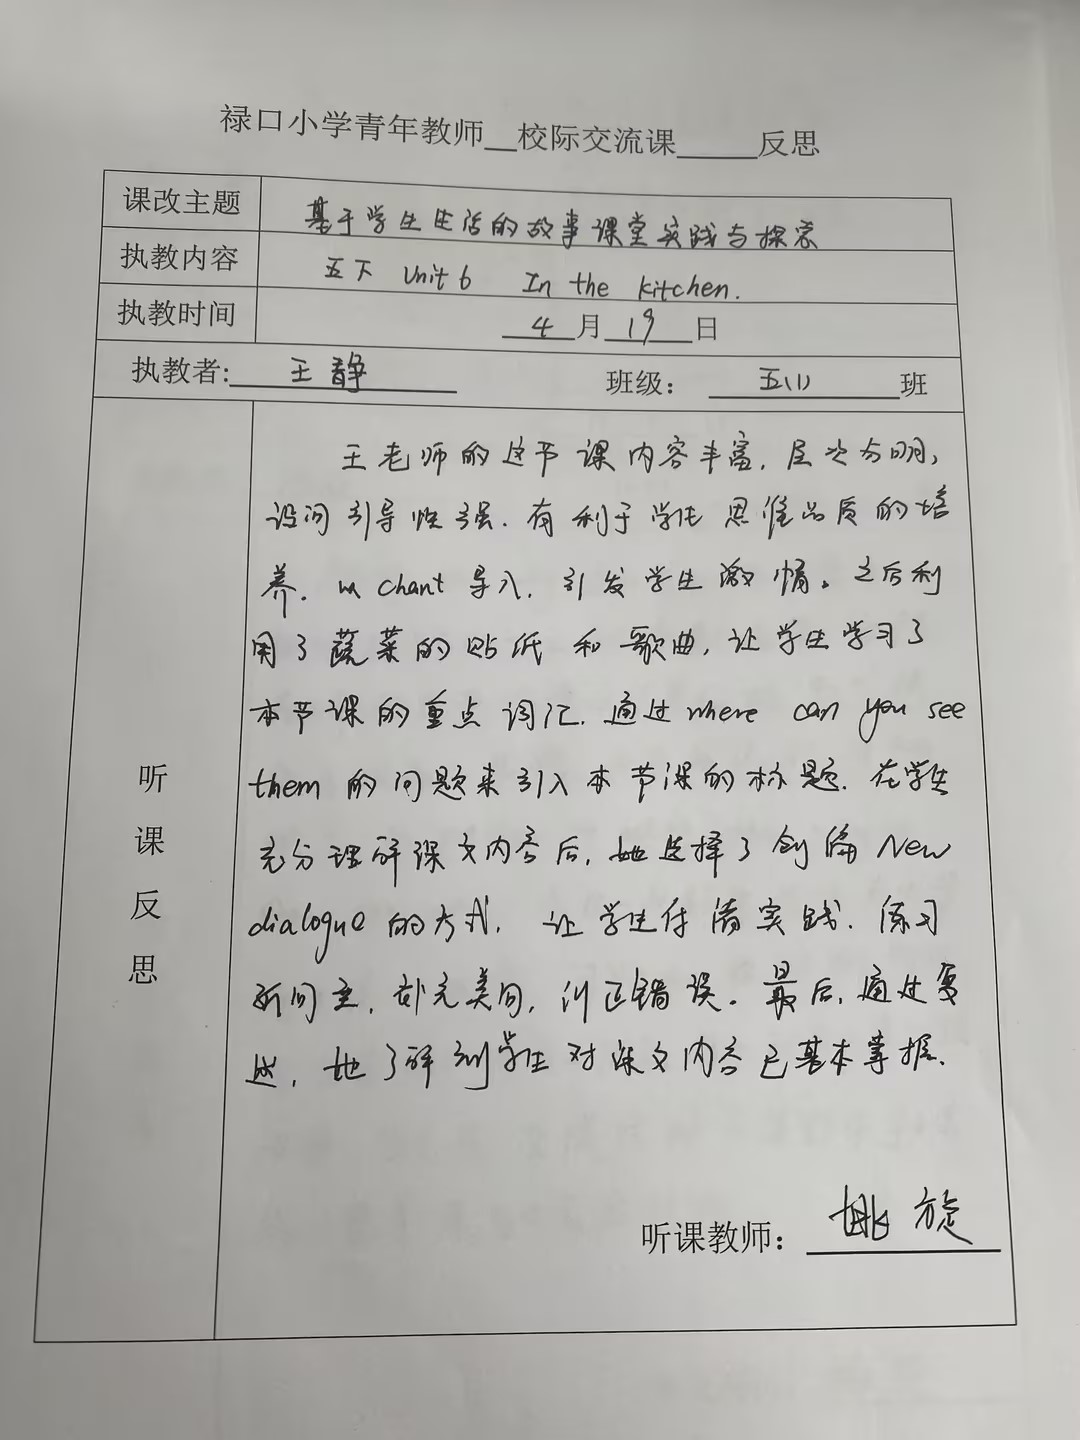 禄口小学青年教师__校际交流课_____反思
课改主题 基于学生生活的故事课堂实践与探索
执教内容 五下 Unit 6 In the kitchen.
执教时间 4月19日
执教者: 王静 班级: 五(1)班
听课反思
王老师的这节课内容丰富，层次分明，
设问引导性强.有利于学生思维品质的培
养.以chant导入.引发学生激情。之后利
用了蔬菜的贴纸和歌曲,让学生学习了
本节课的重点词汇.通过where can you see
them的问题来引入本节课的标题.在学生
充分理解课文内容后,她选择了创编New
dialogue的方式,让学生付诸实践.练习
所问,补充,纠正错误.最后,通过复
述,她了解到学生对课文内容已基本掌握.
听课教师: 姚旋